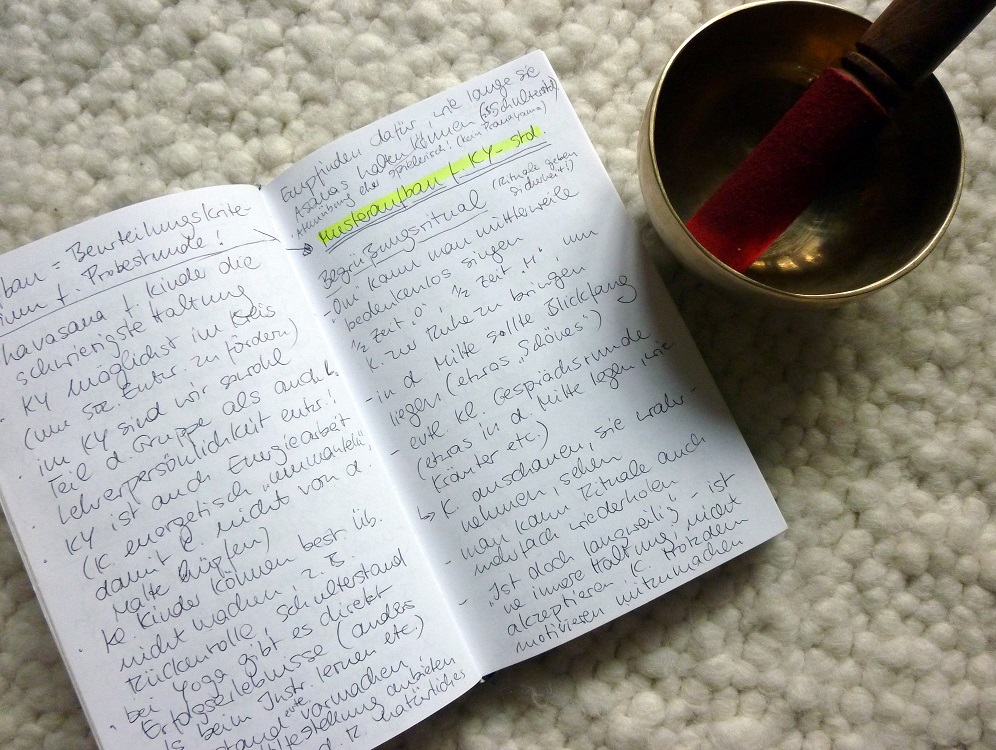 bau = Beurteilungskrite-
rium f. Probestunde!
havasana f. Kinder die
schwierigste Haltung
KY möglichst im Kreis
(um soz. Entw. zu fördern)
im KY sind wir sowohl
Teil d. Gruppe als auch
Lehrerpersönlichkeit entw.!
KY ist auch Energiearbeit
(K. energetisch "ummanteln"
damit K. nicht von d.
Matte hüpfen)
ke. Kinder können best. Üb.
nicht machen z.B.
Rückenrolle, Schulterstand
bei Yoga gibt es direkt
Erfolgserlebnisse (anders
als beim Instr. lernen etc.)
vormachen,
Hilfestellung anbieten
natürliches
Empfinden dafür, wie lange sie
Asanas halten können (Schulterstd)
Atemübung eher spielerisch! (kein Pranayama)
Musteraufbau f. KY-Std.
Begrüßungsritual (Rituale geben
Sicherheit!)
- Om kann man mittlerweile
bedenkenlos singen
1/2 Zeit "O", 1/2 Zeit "M" um
K. zur Ruhe zu bringen
- in d. Mitte sollte Blickfang
liegen (etwas "Schönes")
- evtl. kl. Gesprächsrunde
(etwas in d. Mitte legen wie
Kräuter etc.)
↳ K. anschauen, sie wahr-
nehmen, sehen
- man kann Rituale auch
mehrfach wiederholen
- "Ist doch langweilig" - ist
ne innere Haltung, nicht
akzeptieren K. trotzdem
motivieren mitzumachen